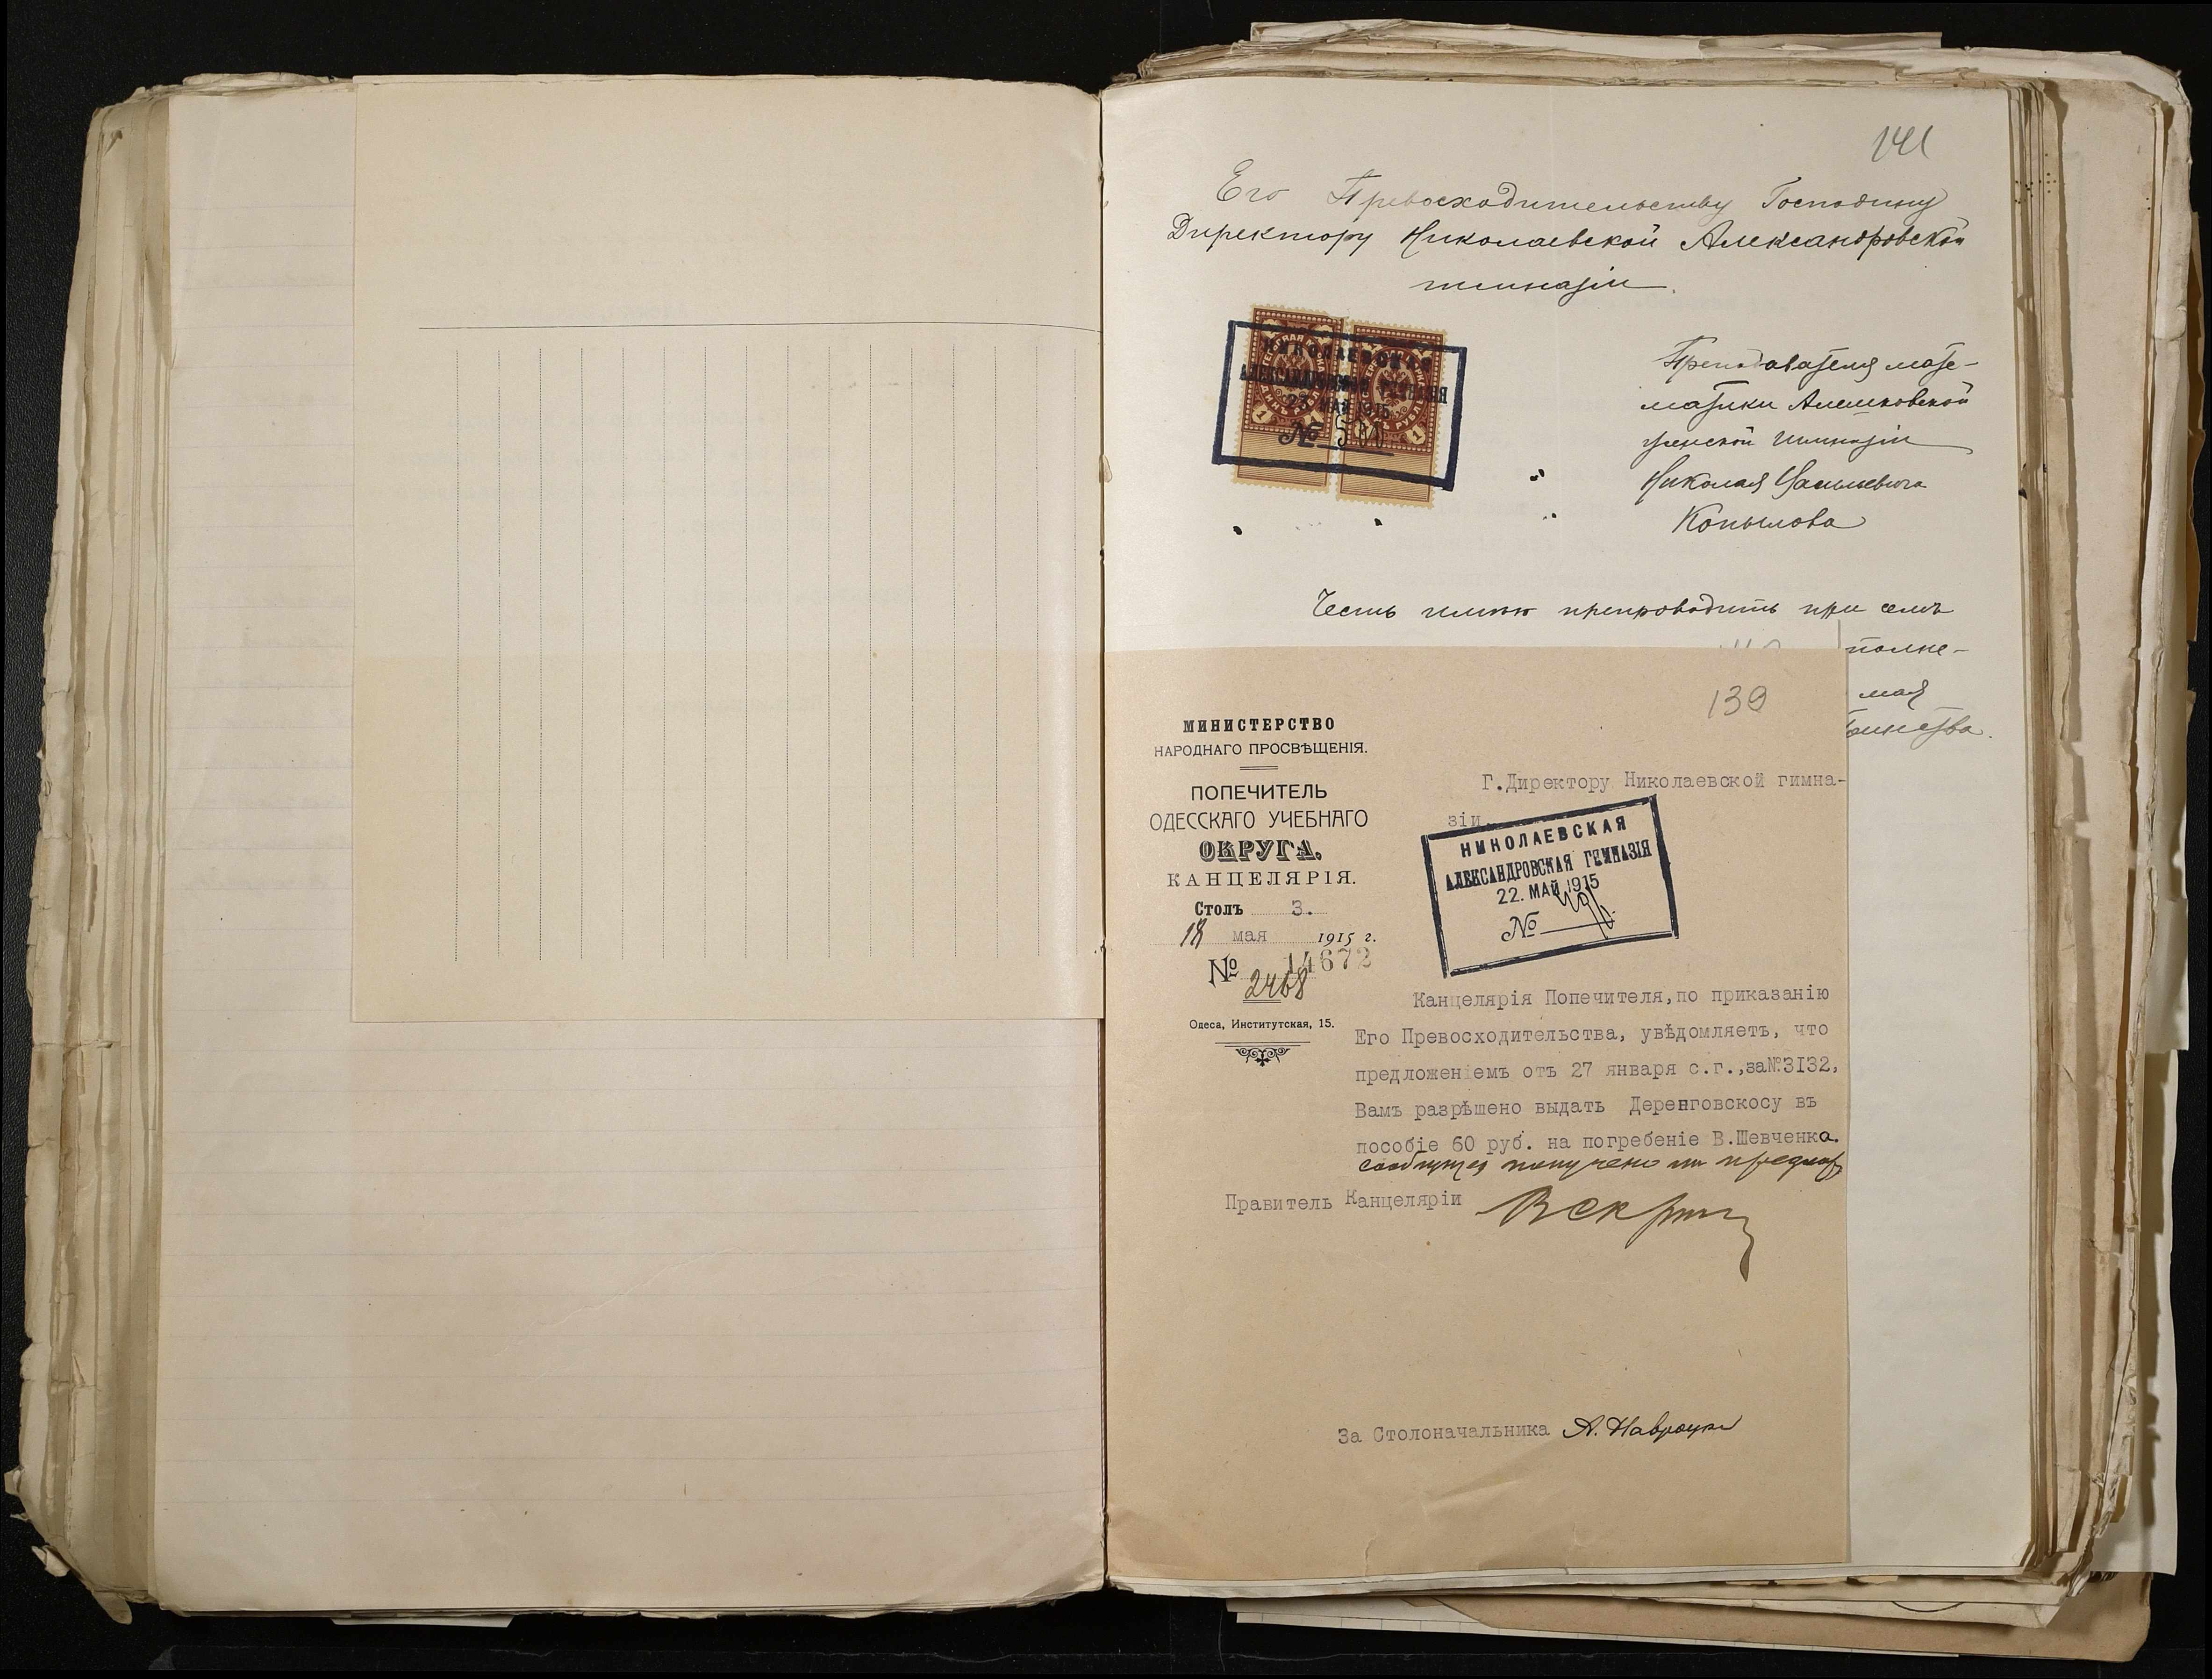 141
Его Превосходительству Господину
Директору Николаевской Александровской
гимназіи.
НИКОЛАЕВСКАЯ
АЛЕКСАНДРОВСКАЯ ГИМНАЗІЯ
23 МАЙ 1915
№
Преподавателя мате-
матики Алешковской
женской гимназіи
Николая Васильевича
Копылова
Честь имѣю препроводить при семъ
полне-
мая
139
МИНИСТЕРСТВО
НАРОДНАГО ПРОСВѢЩЕНІЯ.
ПОПЕЧИТЕЛЬ
ОДЕССКАГО УЧЕБНАГО
ОКРУГА.
КАНЦЕЛЯРІЯ.
Столъ 3.
18 мая 1915 г.
№ 14672
2468
Одеса, Институтская, 15.
Г.Директору Николаевской гимна-
зіи.
НИКОЛАЕВСКАЯ
АЛЕКСАНДРОВСКАЯ ГИМНАЗІЯ
22. МАЙ 1915
№
Канцелярія Попечителя,по приказанію
Его Превосходительства, увѣдомляетъ, что
предложеніемъ отъ 27 января с.г.,за№3132,
Вамъ разрѣшено выдать Деренговскосу въ
пособіе 60 руб. на погребеніе В.Шевченка.
получено ли
Правитель Канцеляріи
За Столоначальника А. Навроцкій